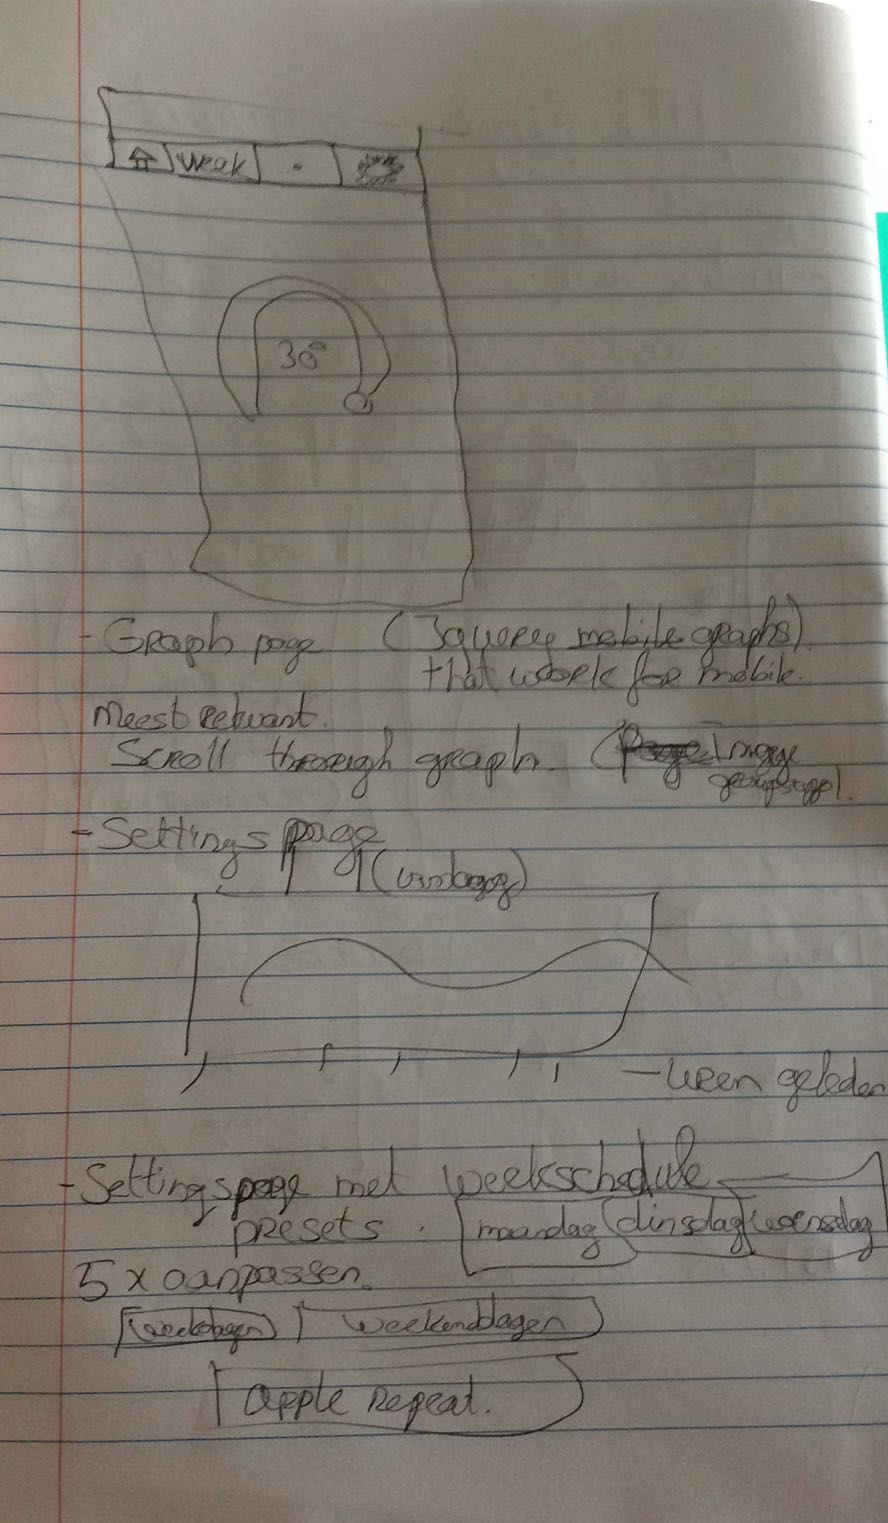 Weak
30°
- Graph page (jquery mobile graphs)
that work for mobile.
Meest relevant.
Scroll through graph. (
- Settings page
(vandaag)
- uren geleden
- Settingspage met weekschedule
presets. maandag dinsdag woensdag
5 x aanpassen.
weekdagen weekenddagen
apple repeat.